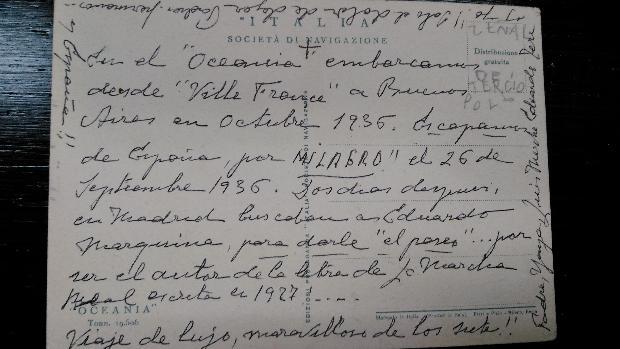 "¡Solo el dolor de dejar
"ITALIA"
SOCIETÀ DI NAVIGAZIONE
Distribuzione
gratuita
En el "Oceania" embarcamos
desde "Ville France" a Buenos
Aires en Octubre 1936. Escapamos
de España, por MILAGRO" el 26 de
Septiembre 1936. Dos dias despues,
en Madrid buscaban a Eduardo
Marquina, para darle "el paseo"... por
ser el autor de la letra de La Marcha
Real escrita en 1927 -...
"OCEANIA"
Tonn. 19.506
Viaje de lujo, maravilloso de los siete!!
España!!